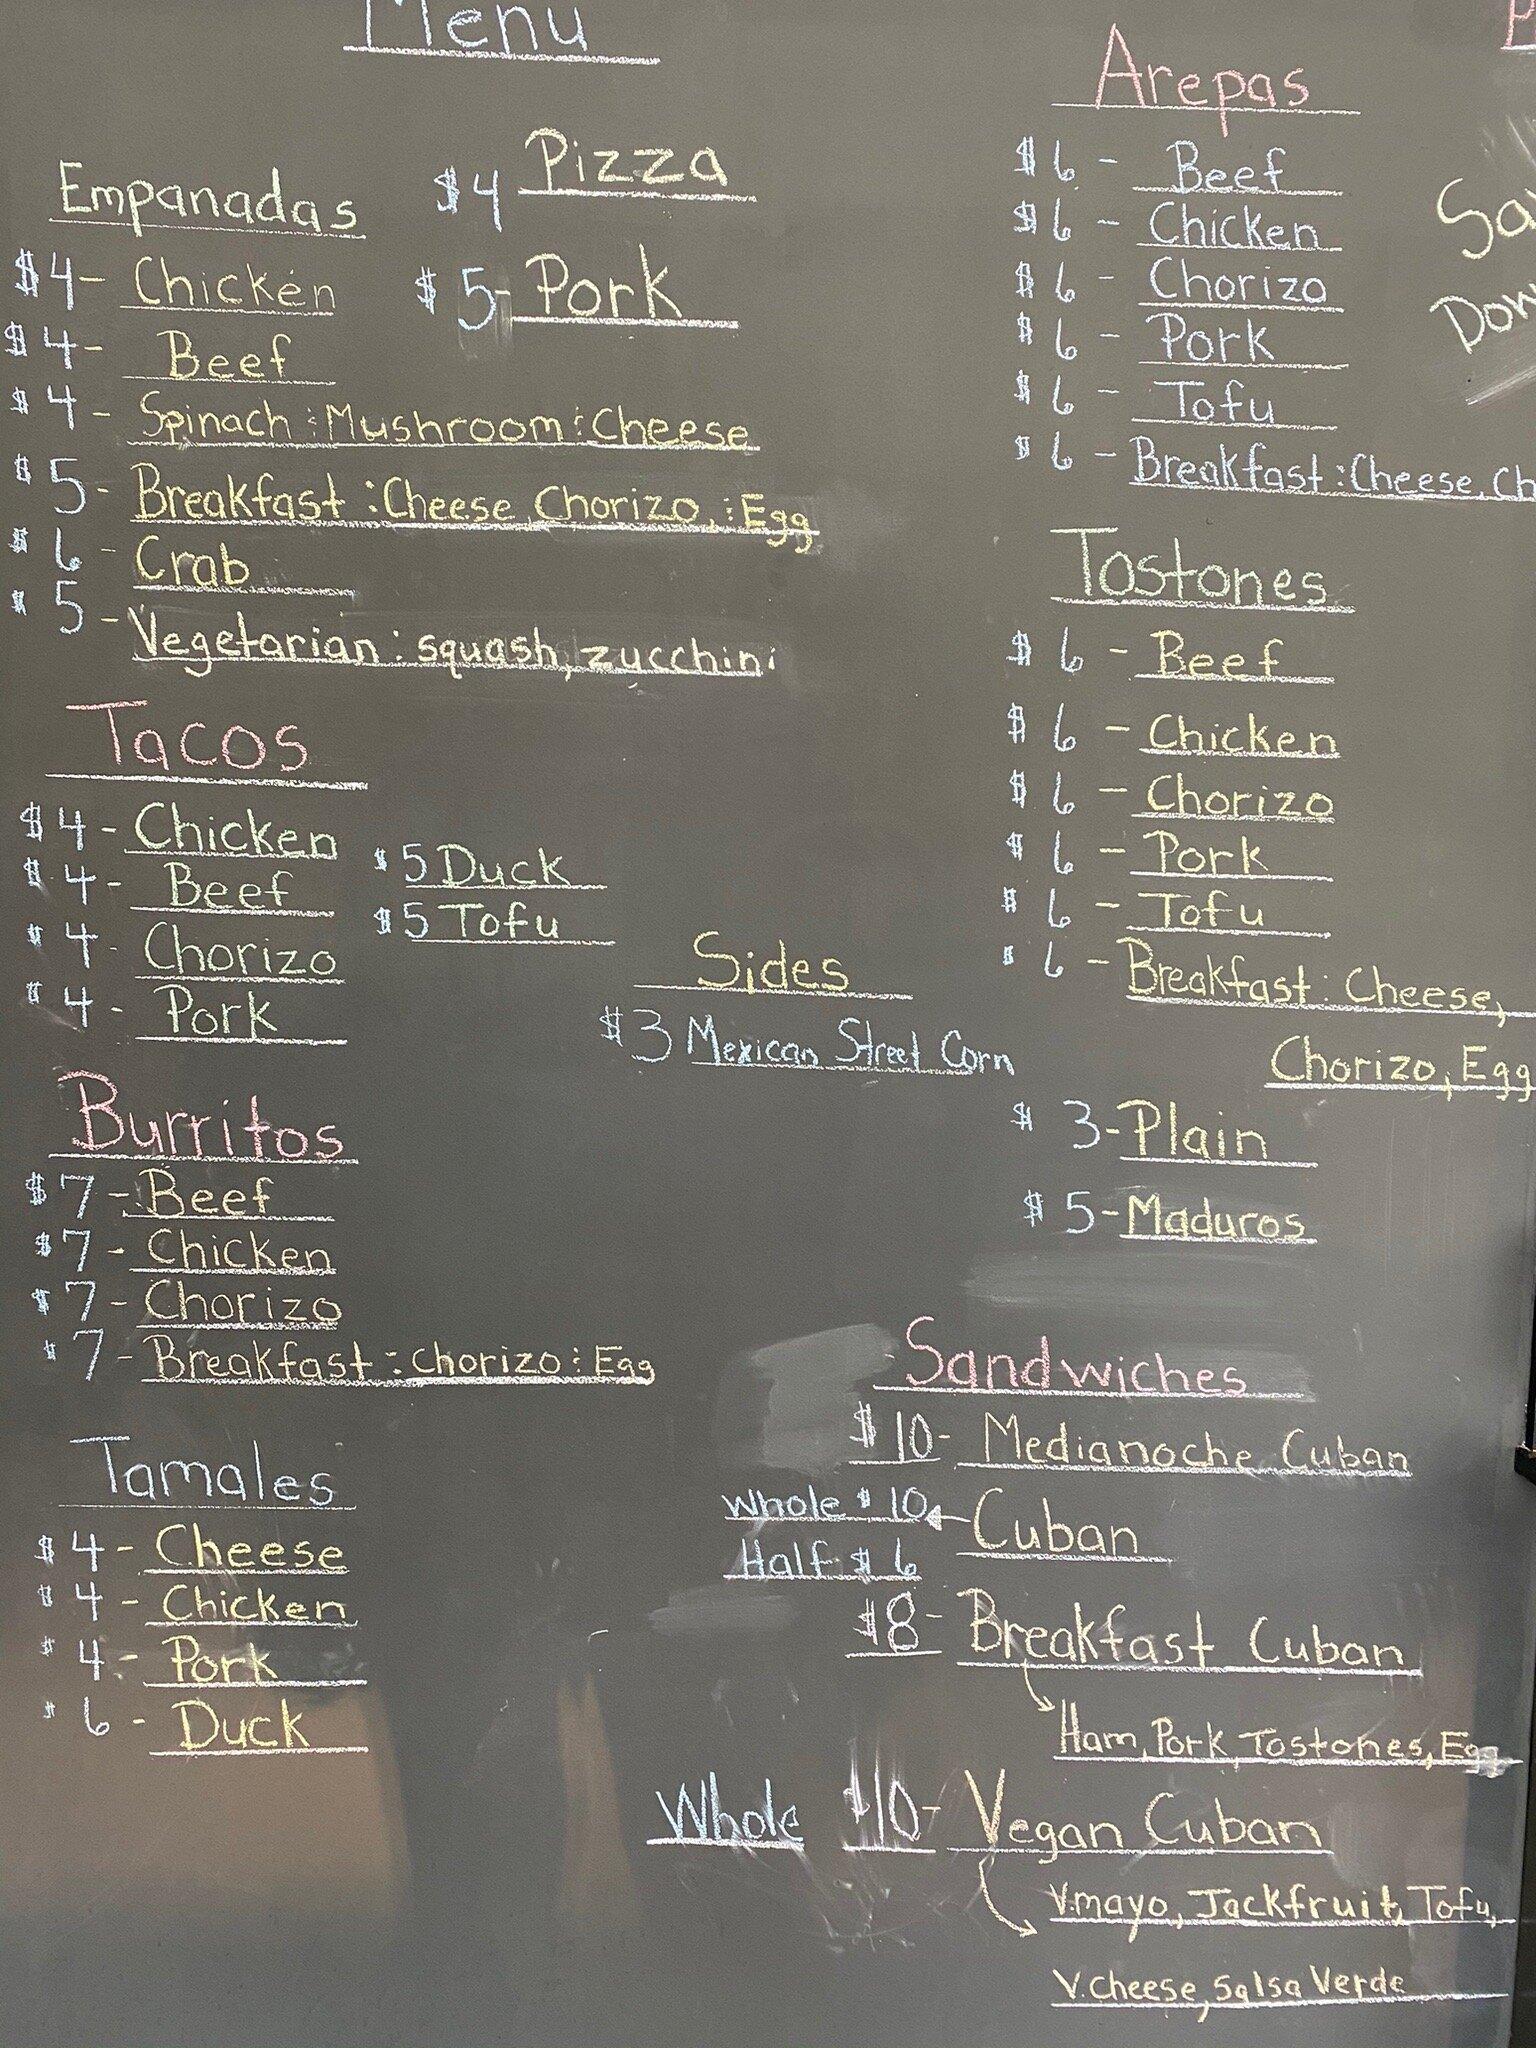 Menu
Empanadas
$4 - Chicken
$4 - Beef
$4 - Spinach : Mushroom : Cheese
$5 - Breakfast : Cheese, Chorizo, : Egg
$6 - Crab
$5 - Vegetarian : squash, zucchini
$4 Pizza
$5 - Pork
Tacos
$4 - Chicken
$4 - Beef
$4 - Chorizo
$4 - Pork
$5 Duck
$5 Tofu
Burritos
$7 - Beef
$7 - Chicken
$7 - Chorizo
$7 - Breakfast : Chorizo : Egg
Tamales
$4 - Cheese
$4 - Chicken
$4 - Pork
$6 - Duck
Sides
$3 Mexican Street Corn
Arepas
$6 - Beef
$6 - Chicken
$6 - Chorizo
$6 - Pork
$6 - Tofu
$6 - Breakfast : Cheese, Ch
Tostones
$6 - Beef
$6 - Chicken
$6 - Chorizo
$6 - Pork
$6 - Tofu
$6 - Breakfast : Cheese,
Chorizo, Egg
$3 - Plain
$5 - Maduros
Sandwiches
$10 - Medianoche Cuban
Whole $10 Cuban
Half $6
$8 - Breakfast Cuban
Ham, Pork, Tostones, Egg
Whole $10 - Vegan Cuban
V.mayo, Jackfruit, Tofu,
V.cheese, Salsa Verde